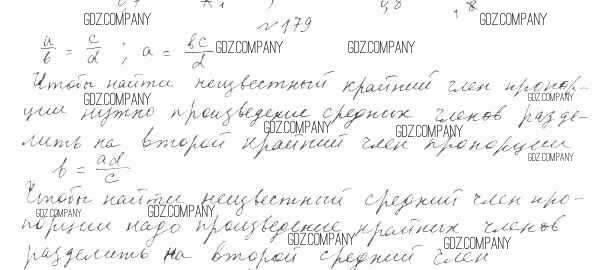 №179
a/b = c/d ; a = bc/d
Чтобы найти неизвестный крайний член пропор-
ции нужно произведение средних членов разде-
лить на второй крайний член пропорции
b = ad/c
Чтобы найти неизвестный средний член про-
порции надо произведение крайних членов
разделить на второй средний член
GDZ.COMPANY
GDZ.COMPANY
GDZ.COMPANY
GDZ.COMPANY
GDZ.COMPANY
GDZ.COMPANY
GDZ.COMPANY
GDZ.COMPANY
GDZ.COMPANY
GDZ.COMPANY
GDZ.COMPANY
GDZ.COMPANY
GDZ.COMPANY